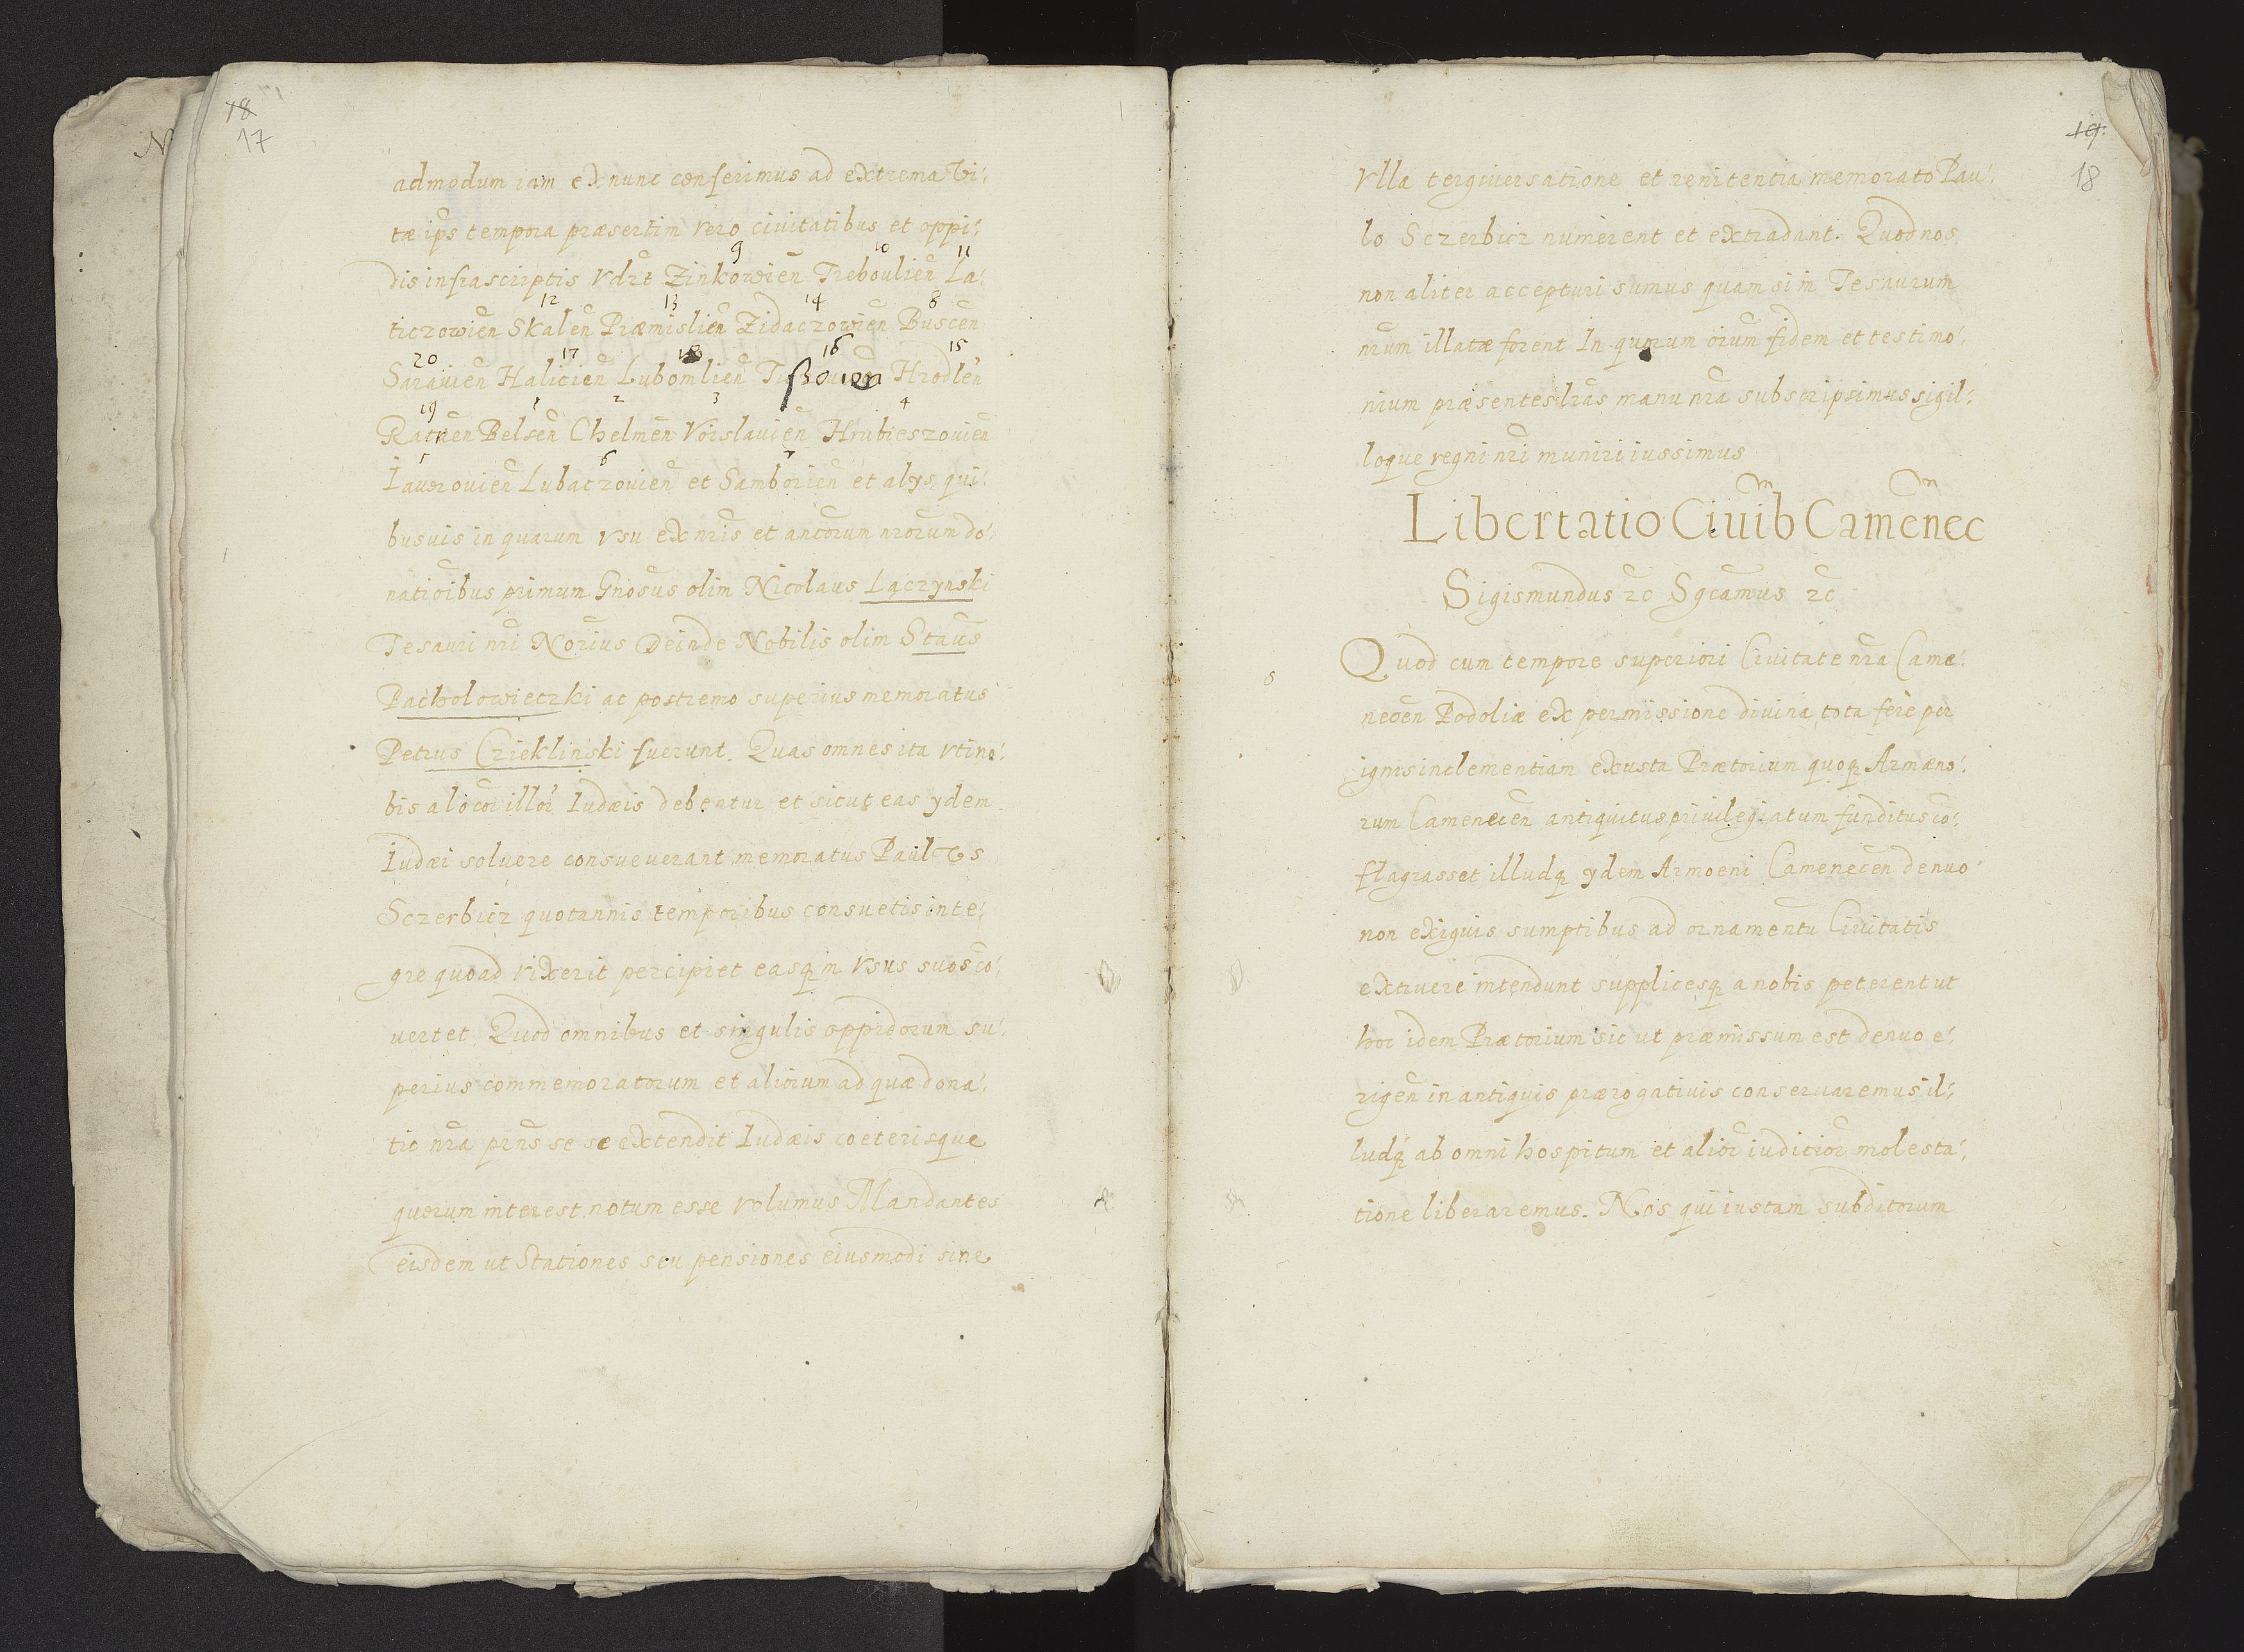 18
17
admodum iam ex nunc conferimus ad extrema vi:
tæ ips tempora præsertim vero ciuitatibus et oppi:
9 10 11
dis infrascriptis vdzt Zinkowień Trebouliēn La:
12 13 14 8
ticzowień Skalēn Præmisliēn Zidaczowień Buscēn
20 17 18 16 15
Sarauiēn Haliciēn Lubomliēn Hrodlēn
19 1 2 3 4
Ratnēn Belsēn Chelmēn Voislauiēn Hrubieszouiēn
5 6 7
Iauorouiēn Lubaczouiēn et Samboriēn et alÿs qui:
busuis in quarum vsu ex nr̃is et antc̃orum nr̃orum do:
natiōibus primum Gnosus olim Nicolaus Lączynski
Tesauri nr̃i Norius Deinde Nobilis olim Staus
Pacholowieczki ac postremo superius memoratus
Petrus Czieklinski fuerunt. Quas omnes ita vti no:
bis a locor illor Iudæis debentur et sicut eas ÿdem
Iudæi soluere consueuerant memoratus Paulus
Sczerbicz quotannis temporibus consuetis inte:
gre quoad vixerit percipiet easq̃ in vsus suos cō:
uertet Quod omnibus et singulis oppidorum su:
perius commemoratorum et aliorum ad quæ dona:
tio nr̃a prñs se se extendit Iudæis coeterisque
quorum interest notum esse volumus Mandantes
eisdem ut Stationes seu pensiones eiusmodi sine
19.
18
vlla tergiuersatione et renitentia memorato Pau:
lo Sczerbicz numerent et extradant. Quod nos
non aliter accepturi sumus quam si in Tesaurum
nr̃um illatæ forent In quorum oium fidem et testimo:
nium præsentes lr̃as manu nr̃a subscripsimus sigil:
loque regni nr̃i muniri iussimus
Libertatio Ciuib Camenec
Sigismundus zc Sgcamus zc
Quod cum tempore superiori Ciuitate nr̃a Came:
5
necēn Podoliæ ex permissione diuina tota ferè per
ignis inclementiam exusta Prætorium quoq̃ Armeno:
rum Camenecēn antiquitus priuilegiatum funditus cō:
flagrasset illudq̃ ÿdem Armoeni Camenecēn denuo
non exiguis sumptibus ad ornamentū Ciuitatis
extruere intendunt supplicesq̃ a nobis peterent ut
hoc idem Prætorium sic ut præmissum est denuo e:
rigēn in antiquis prærogatiuis conseruaremus il:
ludq̃ ab omni hospitum et alior iudicior molesta:
tione liberaremus. Nos qui iustam subditorum